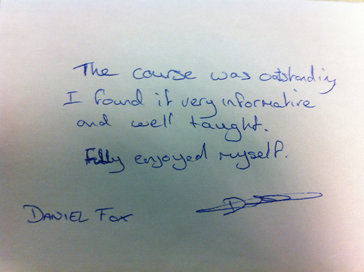 The course was outstanding
I found it very informative
and well taught.
Fully enjoyed myself.
DANIEL FOX